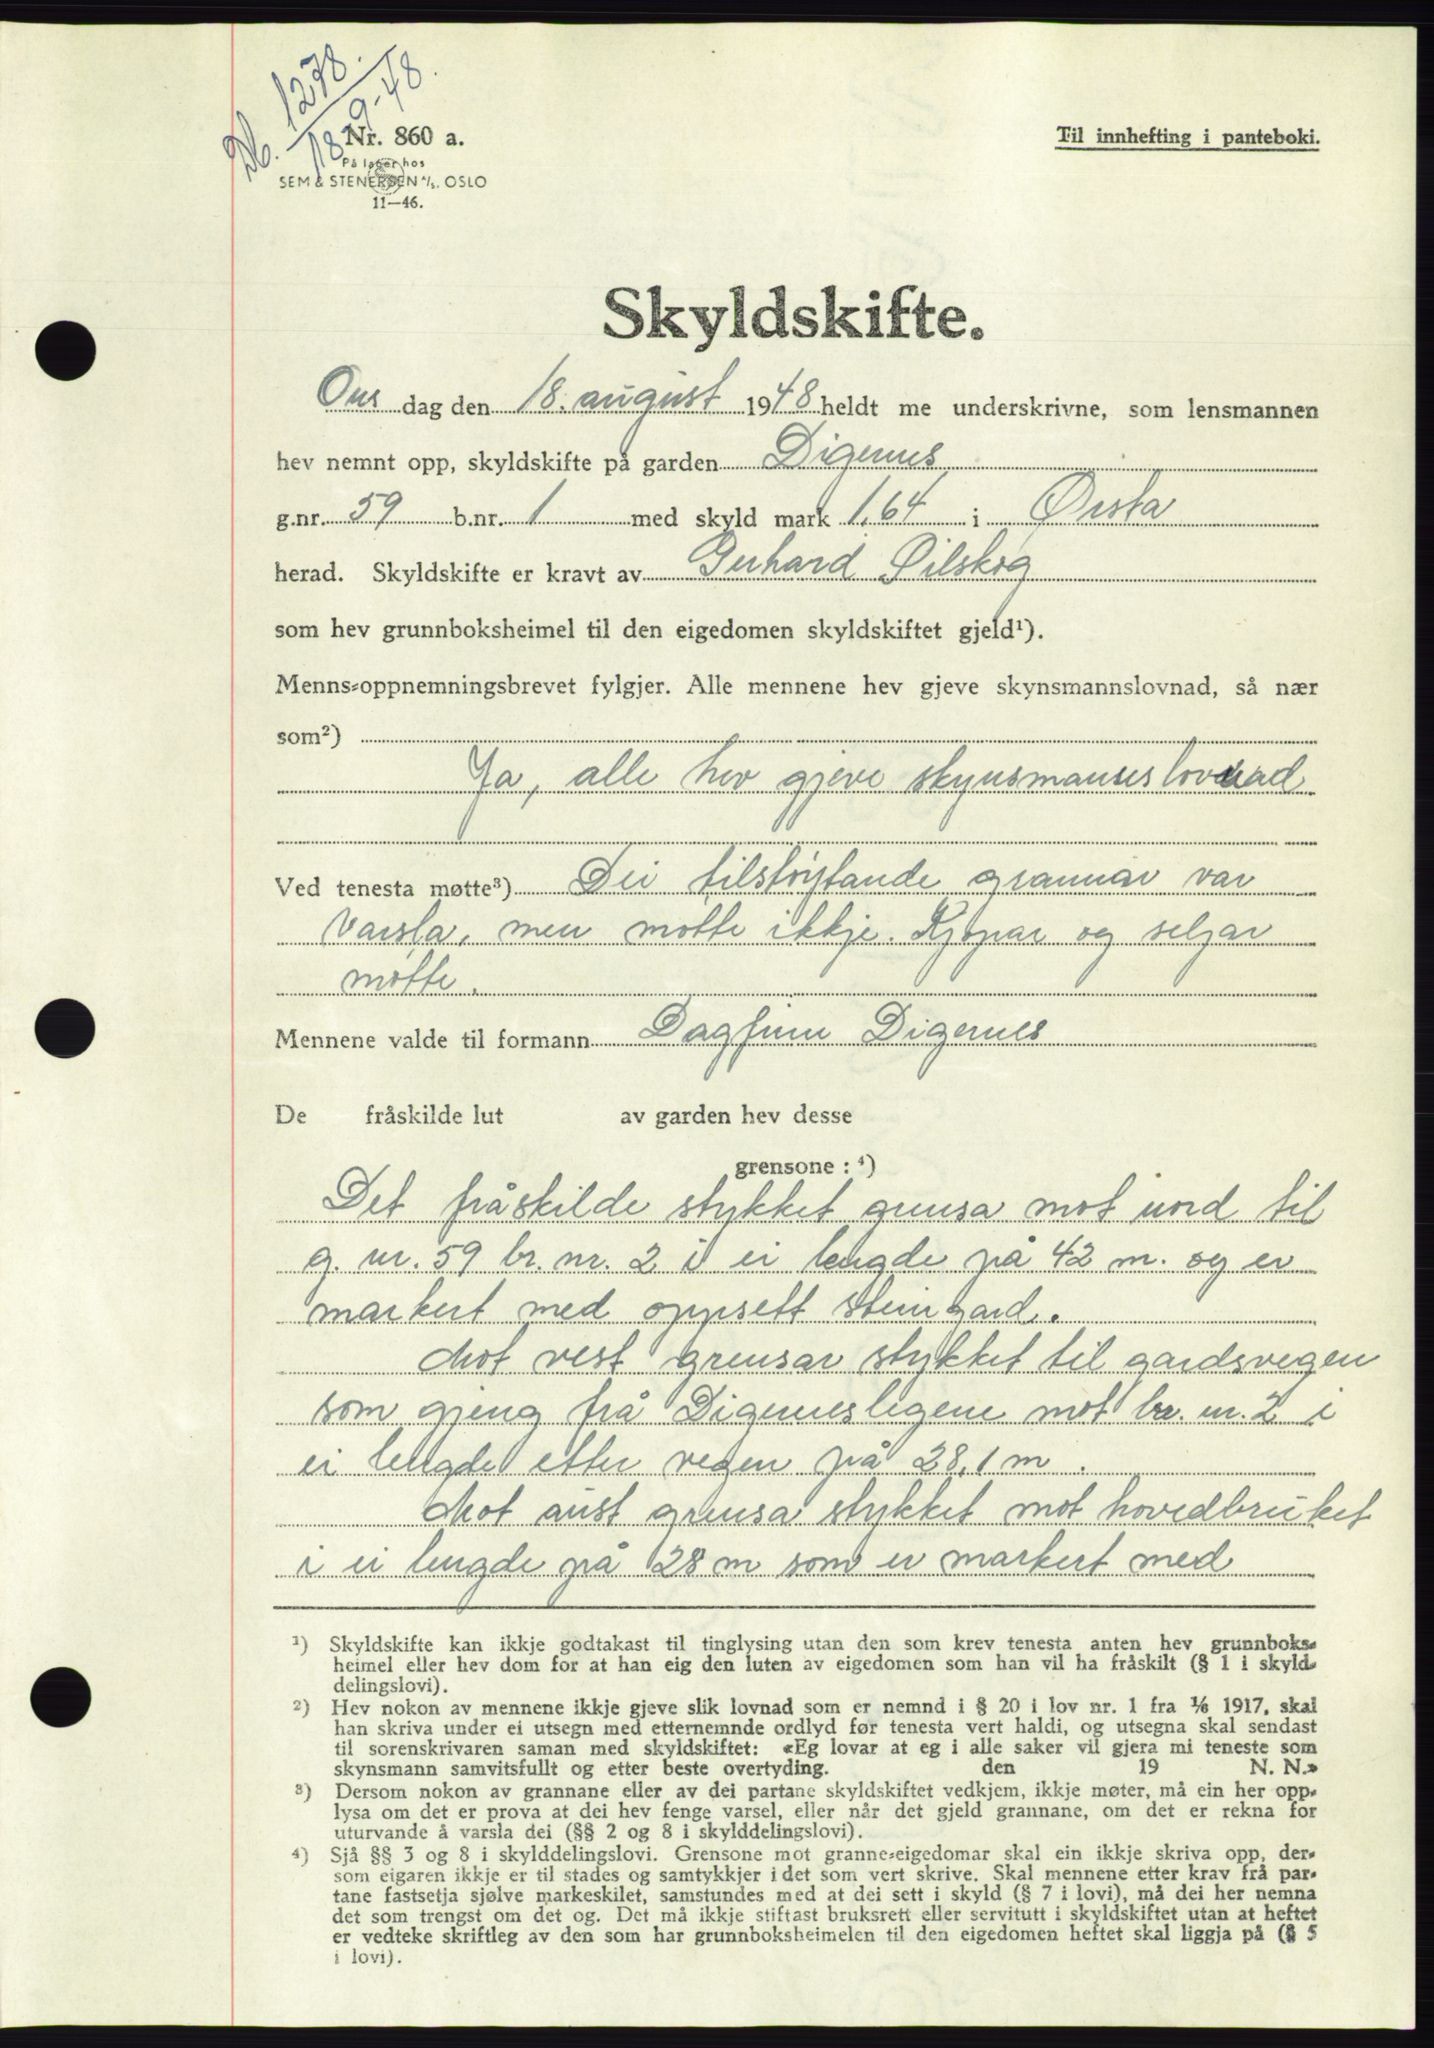 Db. 1278.
18-9-48.
Nr. 860 a.
På lager hos
SEM & STENERSEN A/S. OSLO
11—46.
Til innhefting i panteboki.
Skyldskifte.
Ons dag den 18. august 1948 heldt me underskrivne, som lensmannen
hev nemnt opp, skyldskifte på garden Digernes
g.nr. 59 b.nr. 1 med skyld mark 1,64 i Ørsta
herad. Skyldskifte er kravt av Gerhard Pilskog
som hev grunnboksheimel til den eigedomen skyldskiftet gjeld¹).
Menns-oppnemningsbrevet fylgjer. Alle mennene hev gjeve skynsmannslovnad, så nær
som²)
Ja, alle hev gjeve skynsmanneslovnad
Ved tenesta møtte³) Dei tilstøytande grannar var
varsla, men møtte ikkje. Kjøpar og seljar
møtte.
Mennene valde til formann Dagfinn Digernes
De fråskilde lut av garden hev desse
grensone: ⁴)
Det fråskilde stykket grensa mot nord til
g. nr. 59 br. nr. 2 i ei lengde på 42 m. og er
markert med oppsett steingard.
Mot vest grensar stykket til gardsvegen
som gjeng frå Digerneslegene mot br. nr. 2 i
ei lengde etter vegen på 28,1 m.
Mot aust grensa stykket mot hovedbruket
i ei lengde på 28 m som er markert med
¹) Skyldskifte kan ikkje godtakast til tinglysing utan den som krev tenesta anten hev grunnboks-
heimel eller hev dom for at han eig den luten av eigedomen som han vil ha fråskilt (§ 1 i skyld-
delingslovi).
²) Hev nokon av mennene ikkje gjeve slik lovnad som er nemnd i § 20 i lov nr. 1 fra 1/6 1917, skal
han skriva under ei utsegn med etternemnde ordlyd før tenesta vert haldi, og utsegna skal sendast
til sorenskrivaren saman med skyldskiftet: «Eg lovar at eg i alle saker vil gjera mi teneste som
skynsmann samvitsfullt og etter beste overtyding. den 19 N. N.»
³) Dersom nokon av grannane eller av dei partane skyldskiftet vedkjem, ikkje møter, må ein her opp-
lysa om det er prova at dei hev fenge varsel, eller når det gjeld grannane, om det er rekna for
uturvande å varsla dei (§§ 2 og 8 i skylddelingslovi).
⁴) Sjå §§ 3 og 8 i skylddelingslovi. Grensone mot granne-eigedomar skal ein ikkje skriva opp, der-
som eigaren ikkje er til stades og samtykkjer i det som vert skrive. Skal mennene etter krav frå par-
tane fastsetja sjølve markeskilet, samstundes med at dei sett i skyld (§ 7 i lovi), må dei her nemna
det som trengst om det og. Det må ikkje stiftast bruksrett eller servitutt i skyldskiftet utan at heftet
er vedteke skriftleg av den som har grunnboksheimelen til den eigedomen heftet skal liggja på (§ 5
i lovi).